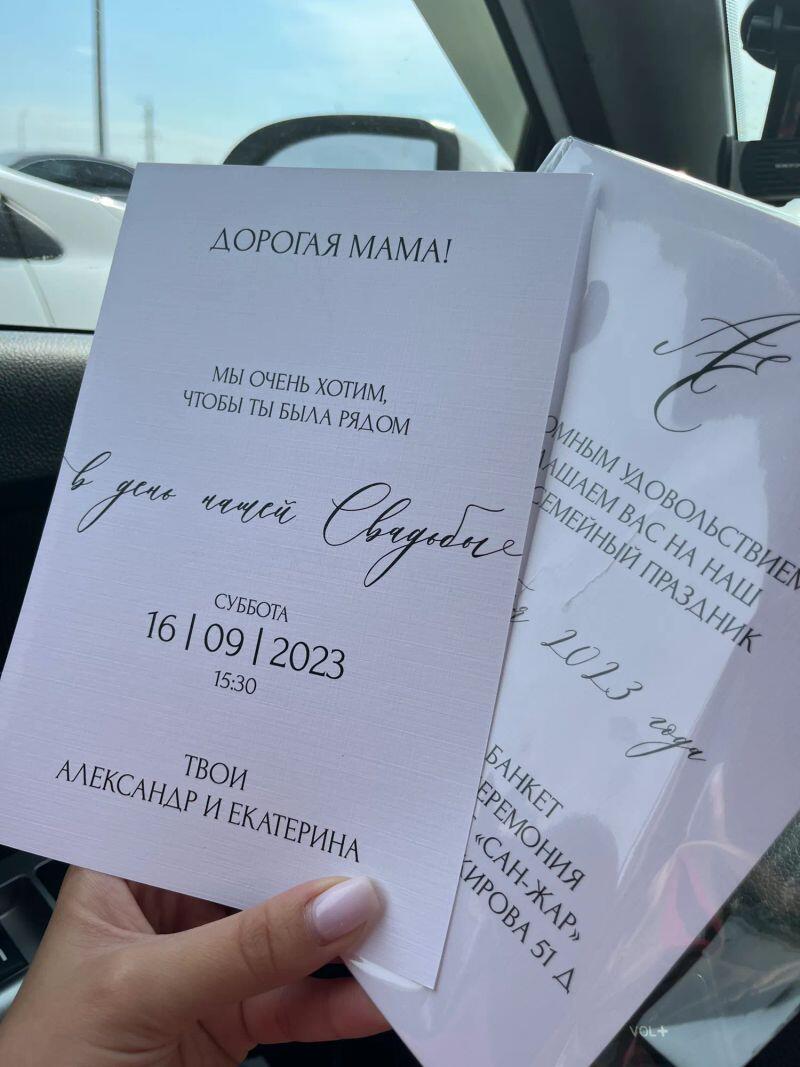 ДОРОГАЯ МАМА!
МЫ ОЧЕНЬ ХОТИМ,
ЧТОБЫ ТЫ БЫЛА РЯДОМ
в день нашей Свадьбы
СУББОТА
16 | 09 | 2023
15:30
ТВОИ
АЛЕКСАНДР И ЕКАТЕРИНА
УДОВОЛЬСТВИЕМ
ВАС НА НАШ
СЕМЕЙНЫЙ ПРАЗДНИК
2023 года
БАНКЕТ
«САН-ЖАР»
КИРОВА 51 Д
VOL+